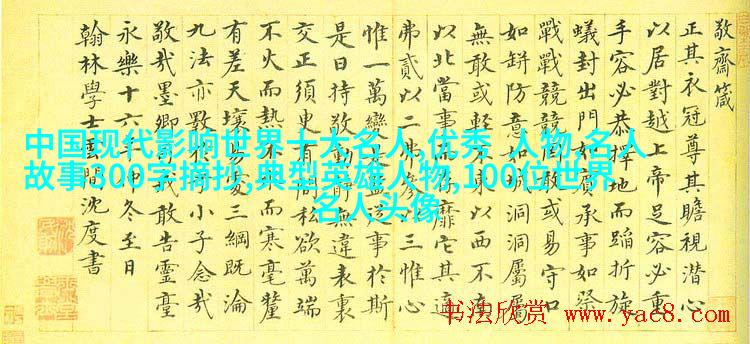 敬齋箴
正其衣冠尊其瞻視潛心
以居對越上帝足容必重
手容必恭擇地而蹈折旋
蟻封出門如賓承事如祭
戰戰兢兢罔敢或易守口
如缾防意如洞洞屬屬
無敢或輕不東以西不南
以北當事而靡它其適
弗貳以二弗參三惟心
惟一萬變是事於斯
是曰持敬動靜無違表裏
交正須臾有間松欲萬端
不火而熱不而寒毫釐
有差天壤易處三綱既淪
九法亦斁於小子念哉
敬哉墨卿司敢告靈臺
永樂十六年仲冬至日
翰林學士雲間沈度書
中国现代影响世界十大名人,优秀 人物,名人
故事300字摘抄,典型英雄人物,100位世界
名人头像
书法欣赏
www.yac8.com